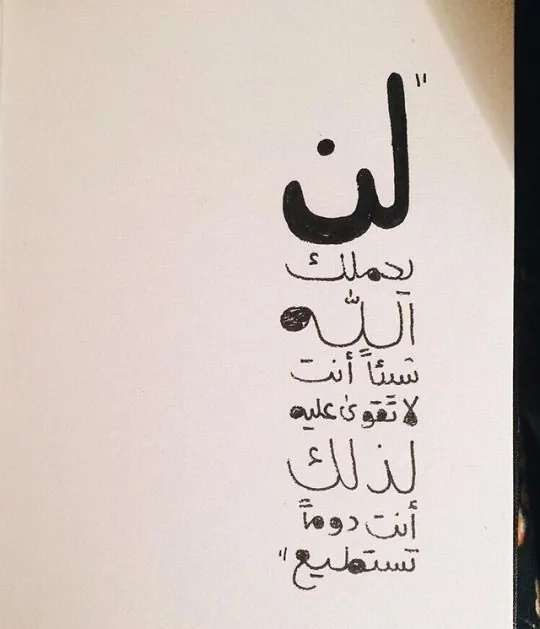 "لن
يحملك
الله
شيئاً أنت
لا تقوى عليه
لذلك
أنت دوماً
تستطيع"